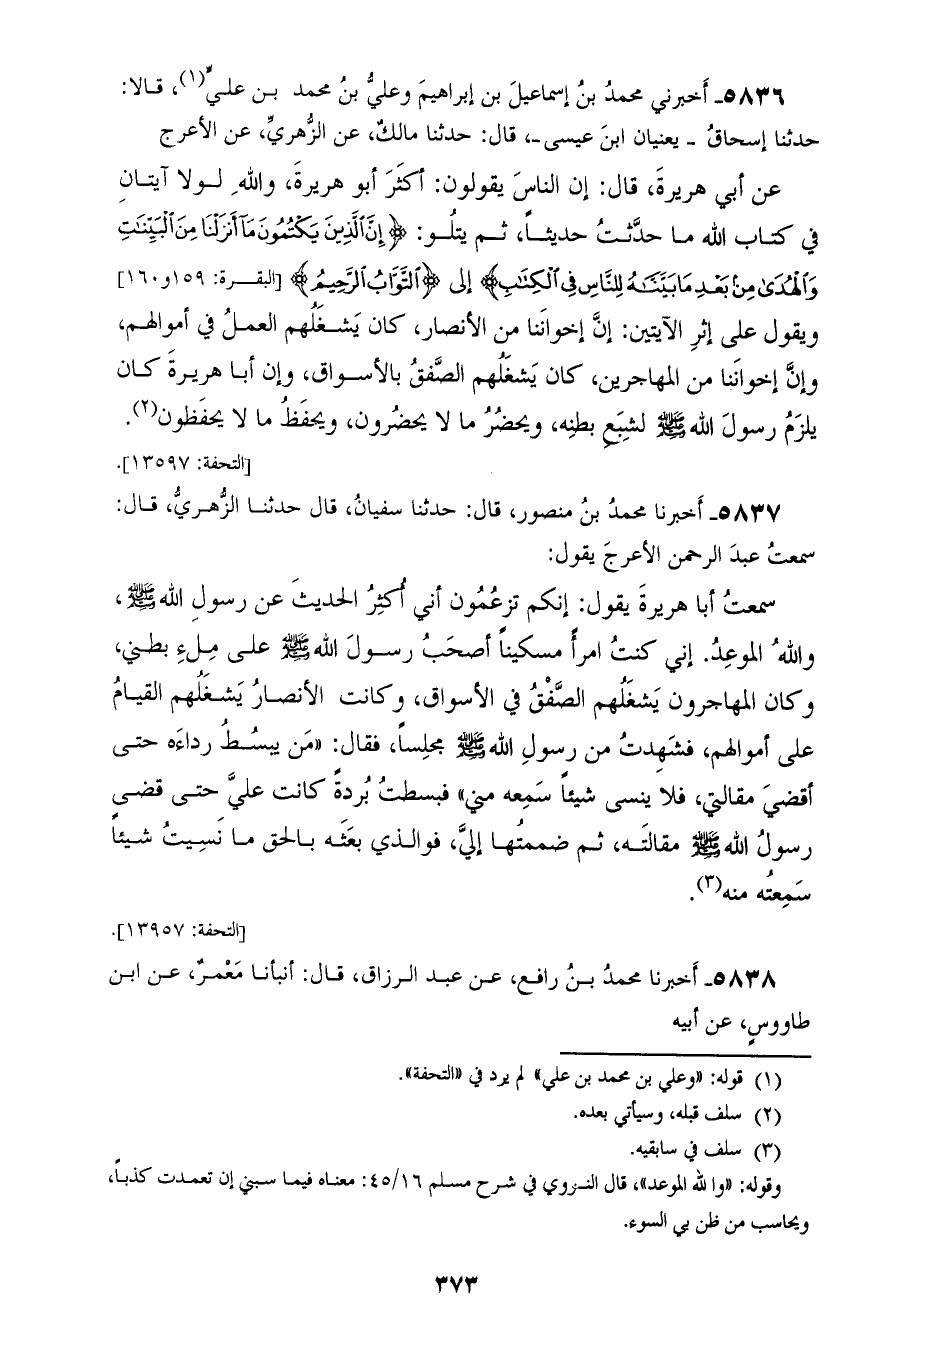 ٥٨٣٦ـ أَخبرني محمدُ بنُ إسماعيلَ بن إبراهيمَ وعليُّ بنُ محمد بـن عليٍّ(١)، قـالا:
حدثنا إسحاقُ ـ يعنيان ابنَ عيسى ـ، قال: حدثنا مالكٌ، عن الزُّهريِّ، عن الأعرج
عن أبي هريرةَ، قال: إن الناسَ يقولون: أكثَرَ أبو هريرة، واللهِ لـولا آيتـانِ
في كتـاب الله مـا حدَّثـتُ حديثـاً، ثـم يتلُـو: ﴿إِنَّ ٱلَّذِينَ يَكْتُمُونَ مَآ أَنزَلْنَا مِنَ ٱلْبَيِّنَـٰتِ
وَٱلْهُدَىٰ مِنۢ بَعْدِ مَا بَيَّنَّـٰهُ لِلنَّاسِ فِى ٱلْكِتَـٰبِ﴾ إلى ﴿ٱلتَّوَّابُ ٱلرَّحِيمُ﴾ [البقـــرة: ١٥٩و١٦٠]
ويقول على إثرِ الآيتين: إنَّ إخوانَنا من الأنصار، كان يَشغَلُهم العملُ في أموالهم،
وإنَّ إخوانَنا من المهاجرين، كان يَشغَلُهم الصَّفقُ بالأسـواق، وإن أبـا هريـرةَ كـان
يلزَمُ رسولَ الله ﷺ لشِبَعِ بطنِه، ويحضُرُ ما لا يحضُرون، ويحفَظُ ما لا يحفَظون(٢).
[التحفة: ١٣٥٩٧].
٥٨٣٧ـ أَخبرنا محمدُ بنُ منصور، قال: حدثنا سفيانُ، قال حدثنـا الزُّهـريُّ، قـال:
سمعتُ عبدَ الرحمن الأعرجَ يقول:
سمعتُ أبا هريرةَ يقول: إنكم تزعُمُون أني أُكثِرُ الحديثَ عن رسولِ الله ﷺ،
واللهُ الموعِدُ. إني كنتُ امرأً مسكيناً أصحَبُ رسـولَ الله ﷺ علـى مِـلءِ بطـني،
وكان المهاجرون يَشغَلُهم الصَّفْقُ في الأسواق، وكانت الأنصارُ يَشغَلُهم القيامُ
على أموالهم، فشَهِدتُ من رسولِ الله ﷺ مجلِساً، فقال: «مَن يبسُـطُ رداءَه حتـى
أقضيَ مقالتي، فلا ينسى شيئاً سَمِعه مني» فبسطتُ بُردةً كانت عليَّ حتـى قضـى
رسولُ الله ﷺ مقالتَـه، ثـم ضممتُهـا إليَّ، فوالـذي بعَثَـه بـالحق مـا نَسِـيتُ شـيئاً
سَمِعتُه منه(٣).
[التحفة: ١٣٩٥٧].
٥٨٣٨ـ أَخبرنا محمدُ بـنُ رافع، عـن عبـد الـرزاق، قـال: أنبأنـا مَعْمـرٌ، عـن ابـن
طاووسٍ، عن أبيه
(١) قوله: «وعلي بن محمد بن علي» لم يرد في «التحفة».
(٢) سلف قبله، وسيأتي بعده.
(٣) سلف في سابقيه.
وقوله: «والله الموعد»، قال النـووي في شرح مسلم ٤٥/١٦: معنـاه فيمـا سـبني إن تعمـدت كذبـاً،
ويحاسب من ظن بي السوء.
٣٧٣